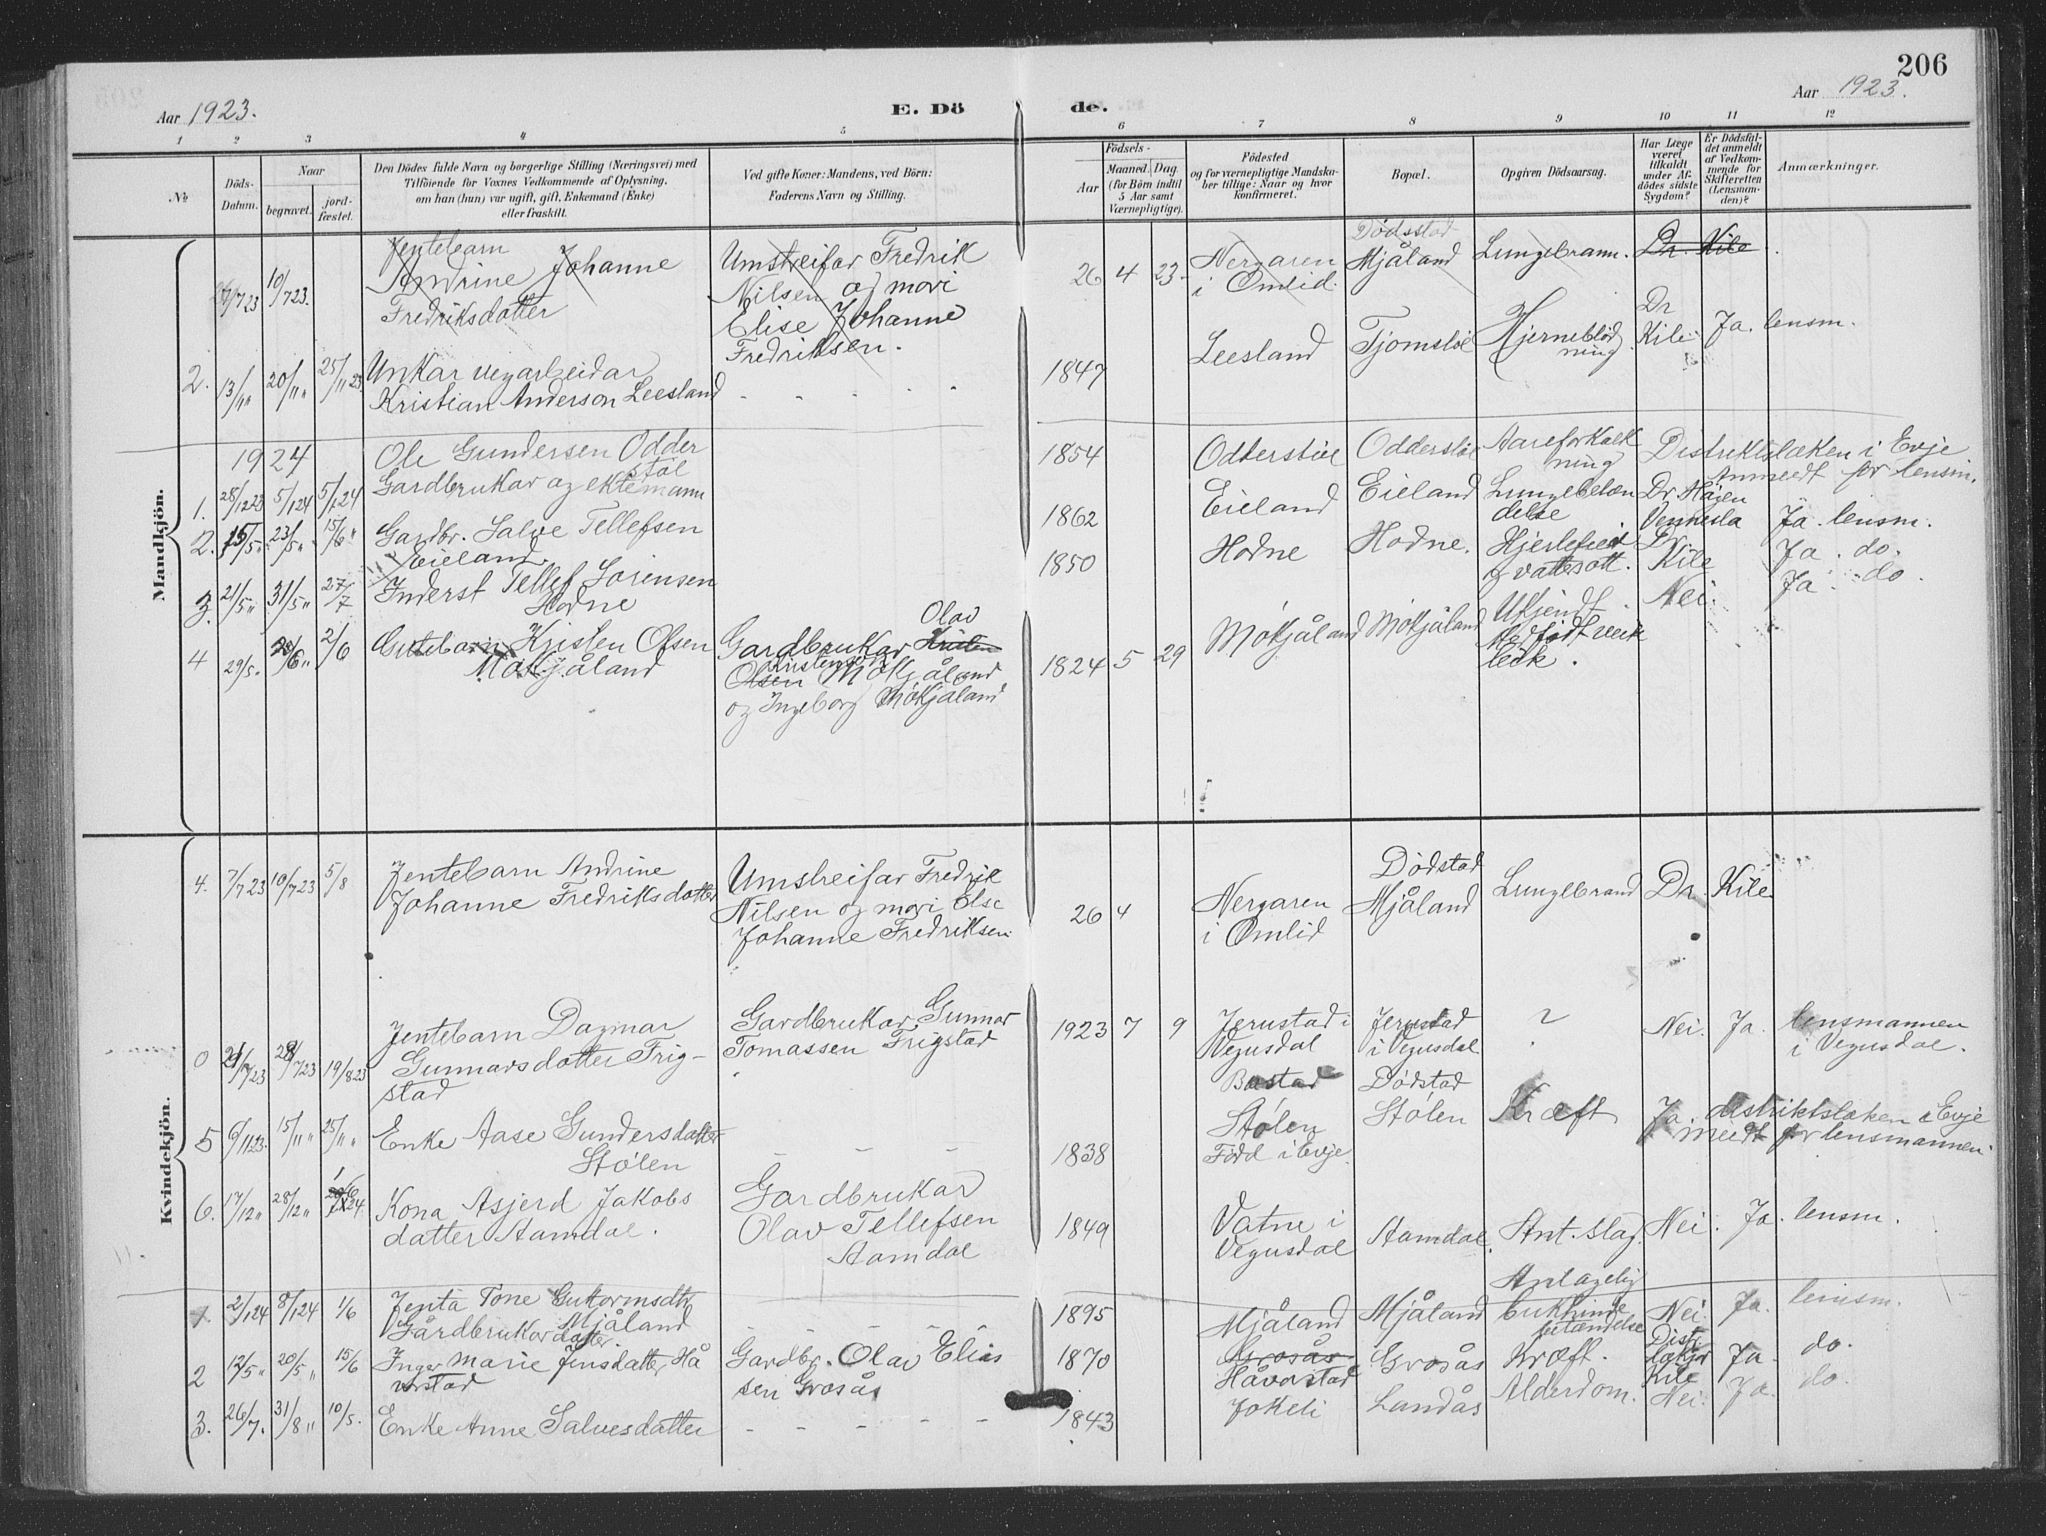 206
Aar 1923.
E. Dö de.
Aar 1923.
1 2 3 4 5 6 7 8 9 10 11 12
No
Döds-Datum.
Naar
begravet.
jordfæstet.
Den Dödes fulde Navn og borgerlige Stilling (Næringsvei) med
Tilföiende for Voxnes Vedkommende af Oplysning,
om han (hun) var ugift, gift, Enkemand (Enke)
eller fraskilt.
Ved gifte Koner: Mandens, ved Börn:
Faderens Navn og Stilling.
Födsels-
Aar
Maaned. Dag.
(for Börn indtil
5 Aar samt
Værnepligtige).
Födested
og for værnepligtige Mandska-
ber tillige: Naar og hvor
konfirmeret.
Bopæl.
Opgiven Dödsaarsag.
Har Læge
været
tilkaldt
under Af-
dødes sidste
Sygdom?
Er Dödsfal-
det anmeldt
af Vedkom-
mende for
Skifteretten
(Lensman-
den)?
Anmærkninger.
Mandkjön.
Jentebarn
Andrine Johanne
Fredriksdatter
7/7 23 10/7 23.
Umstreifar Fredrik
Nilsen og mori
Elise Johanne
Fredriksen.
26 4 23
Nergaren
i Omlid.
Dödsstad
Mjåland
Lungebrann.
Dr. Kile
2. 13/11 " 20/11 " 25/11 23
Unkar vegarbeidar
Kristian Anderson Leesland
- - - - -
1847
Leesland
Tjomstøl
Hjerneblöd
ning
Dr
Kile
Ja. lensm.
1924
1. 28/12 23 5/1 24 5/1 24
Ole Gundersen Odder
støl
Gardbrukar og ektemann
1854
Odderstøl
Odderstøl
Aareforkalk
ning
Distriktslæken i Evje
Anmeldt for lensm.
2. 15/5 " 23/5 " 15/6 "
Gardbr. Salve Tellefsen
Eieland
1862
Eieland
Eieland
Lungebetæn
delse
Dr. Høgen
Vennesla
Ja. lensm.
3. 21/5 " 31/5 " 27/7
Inderst Tellef Sorensen
Hodne
1850
Hodne
Hodne.
Hjertefeil
og vattersott.
Dr
Kile
Ja. do.
4 29/5. 2/6
Gutebarn Kristen Olsen
Møkjåland
Gardbrukar Olav
Kristensen
Olsen Møkjåland
og Ingeborg Møkjåland
1824 5 29
Møkjåland
Møkjåland
Ukjendt.
Medfödt veik
leik.
Nei.
Ja. do.
Kvindekjön.
4. 7/7 23 10/7 23 5/8
Jentebarn Andrine
Johanne Fredriksdatter
Umstreifar Fredrik
Nilsen og mori Else
Johanne Fredriksen.
26 4
Nergaren
i Omlid
Dödstad
Mjåland
Lungebrand
Dr. Kile
0 21/7 23 28/7 23 19/8 23
Jentebarn Dagmar
Gunnarsdatter Frig-
stad
Gardbrukar Gunnar
Tomassen Frigstad
1923 7 9
Jerustad i
Vegusdal
Jerustad
i Vegusdal
?
Nei. Ja.
lensmannen
i Vegusdal.
5 6/11 23. 15/11 " 25/11 "
Enke Aase Gundersdatter
Stølen
- - - -
1838
Bustad
Stølen
Född i Evje
Dödstad
Stølen
Kræft
Ja. distriktslæken i Evje
meldt for lensmannen.
6. 17/12 " 28/12 "
Kona Asjerd Jakobs
datter Aamdal.
Gardbrukar
Olav Tellefsen
Aamdal
1849
Vatne i
Vegusdal
Aamdal.
Ant. slag.
Nei. Ja. lensm.
1. 2/1 24 8/1 24 1/6
Jenta Tone Gutormsdtr
Mjåland
Gårdbrukardatter.
- - - - -
1895
Mjåland
Mjåland
Antagelig
bukhinde
betændelse
Nei. Ja. lensm.
2 12/5 " 20/5 " 15/6
Inger Marie Jensdatter Hå
varstad
Gardbr. Olav Elias
sen Grosås
1870
Grosås
Håvarstad
Grosås
Kræft.
Distr.
Lækjar
Kile
Ja. do.
3. 26/7. 31/8 " 10/5.
Enke Anne Salvesdatter
- - - - -
1843
Jokeli
Landås
Alderdom.
Nei. Ja. do.